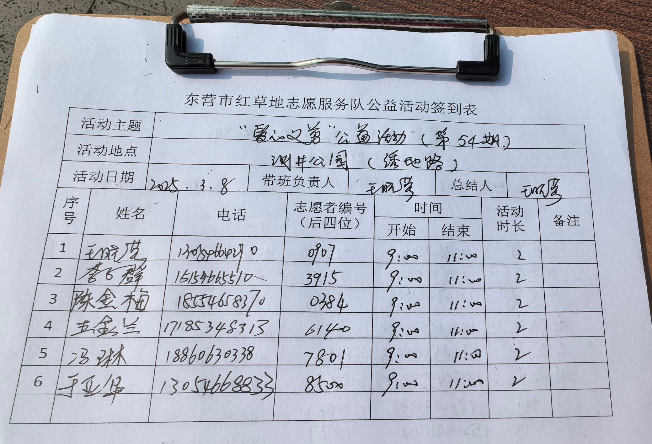 东营市红草地志愿服务队公益活动签到表
活动主题 “爱心义剪”公益活动(第54期)
活动地点 测井公园(绿地路)
活动日期 2025.3.8 带班负责人 总结人
序号 姓名 电话 志愿者编号(后四位) 时间 活动时长 备注
开始 结束
1 0907 9:00 11:00 2
2 3915 9:00 11:00 2
3 陈金梅 18554658370 0384 9:00 11:00 2
4 王金兰 17185348313 6140 9:00 11:00 2
5 18860630338 7801 9:00 11:00 2
6 13054668833 8500 9:00 11:00 2